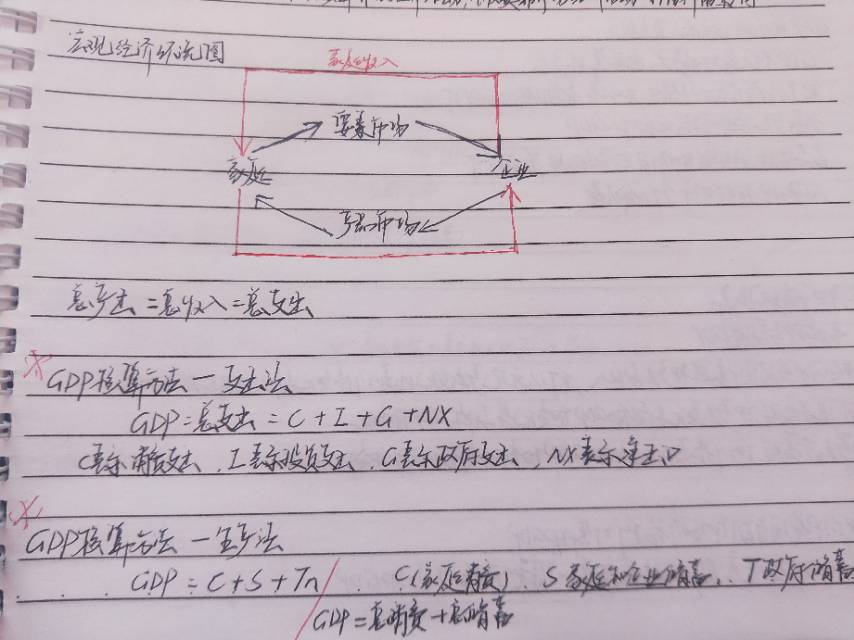 宏观经济环流图
家庭收入
要素市场
家庭
企业
产品市场
总产出=总收入=总支出
GDP核算方法—支出法
GDP=总支出=C+I+G+NX
C表示消费支出、I表示投资支出、G表示政府支出、NX表示净出口
GDP核算方法—生产法
GDP=C+S+Tn / C(家庭消费)、S家庭和企业储蓄、T政府储蓄
GDP=总消费+总储蓄